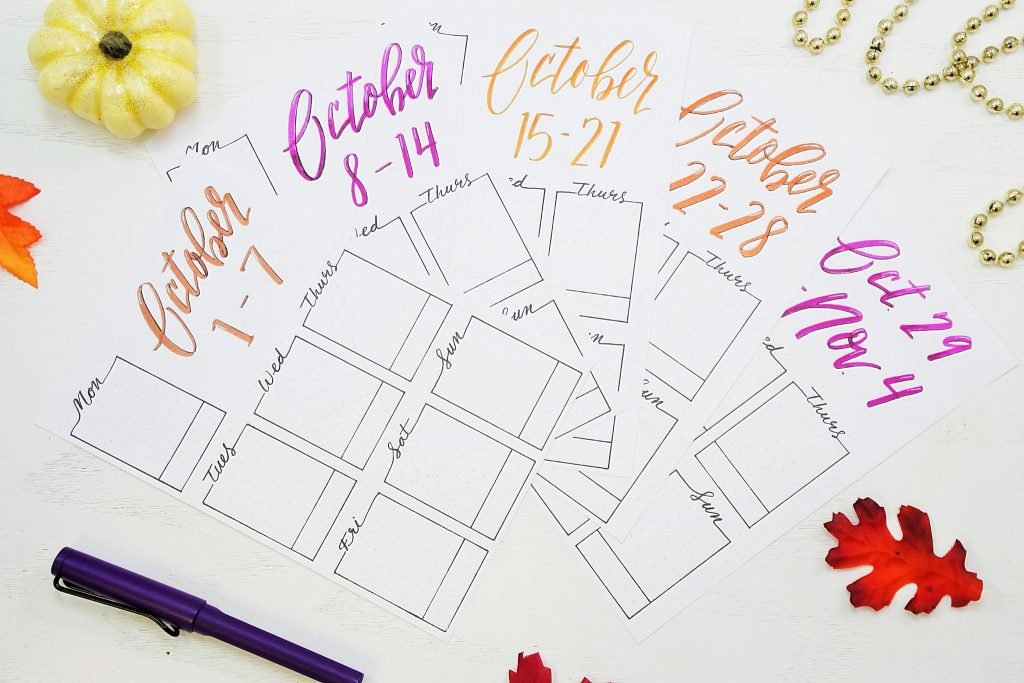 October
1 - 7
Mon
Tues
Wed
Thurs
Fri
Sat
Sun
Mon
October
8 - 14
ed
Thurs
un
n
October
15-21
d
Thurs
n
October
22-28
Thurs
un
Oct. 29
- Nov. 4
d
Thurs
Sun